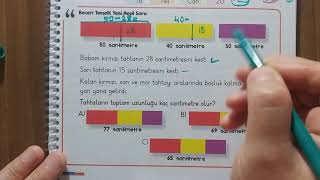 Beceri Temelli Yeni Nesil Soru
50-28=
40-
28
15
50 santimetre
40 santimetre
30 santimetre
Babam kırmızı tahtanın 28 santimetresini kesti.
Sarı tahtanın 15 santimetresini kesti.
Kalan kırmızı, sarı ve mor tahtayı aralarında boşluk kalma
yan yana getirdi.
Tahtaların toplam uzunluğu kaç santimetre olur?
A)
77 santimetre
B)
69 santimetre
C)
65 santimetre